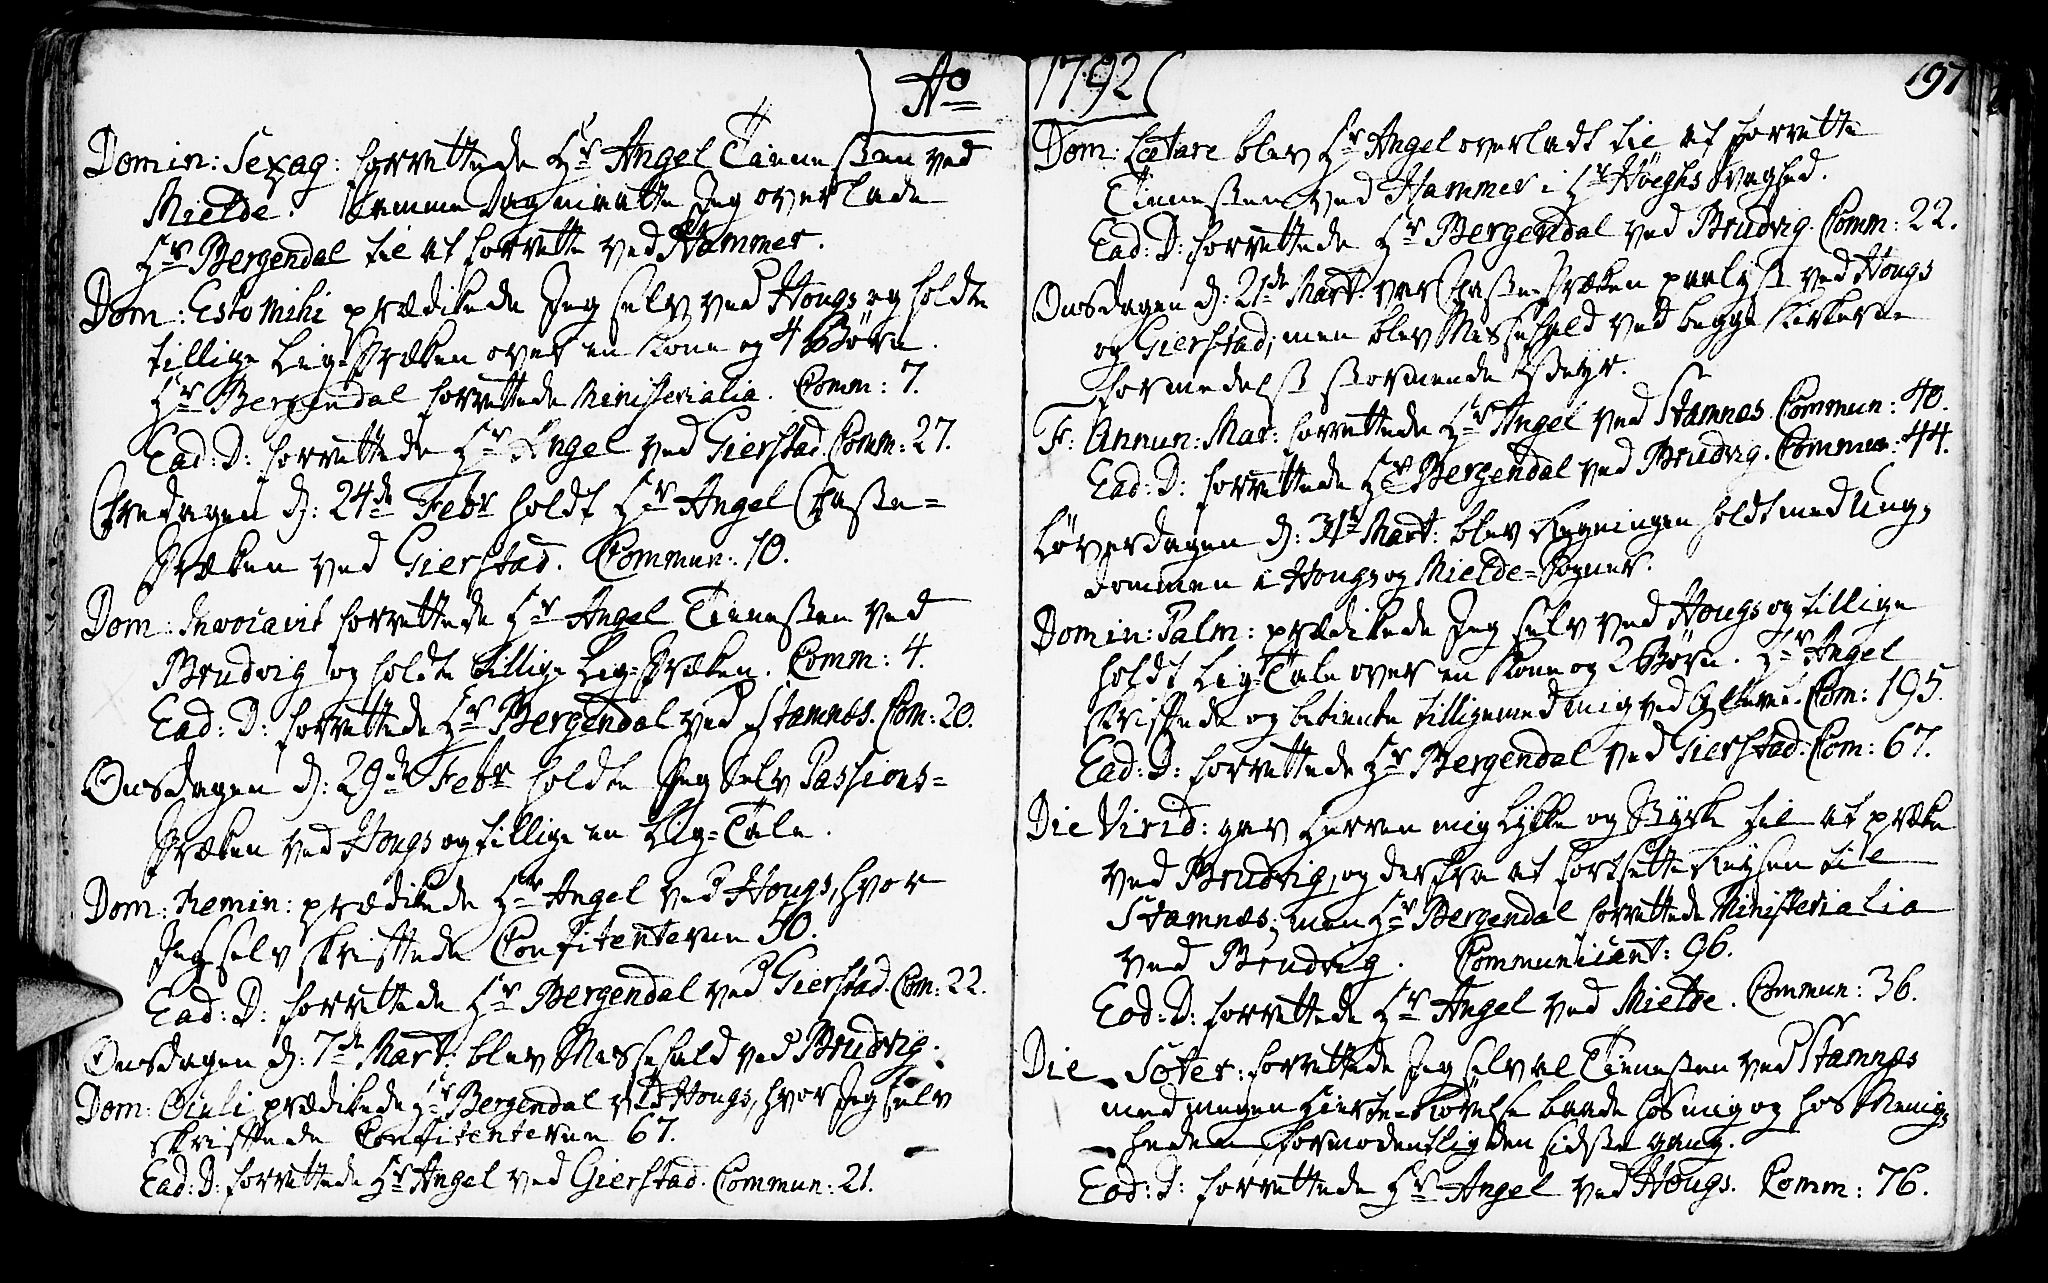 Ao 1792
197
Domin: Sexag: forrettede Hr Angel Tienesten ved
Mielde. Samme Dag maatte Jeg overlade
Hr Bergendal til at forrette ved Hammer.
Dom: Esto Mihi prædikede Jeg selv ved Hougs og holdte
tillige Lig-Præken over en Kone og 4 Børn.
Hr Bergendal forrettede Ministerialia. Comm: 7.
Ead: D: forrettede Hr Angel ved Gierstad. Comm: 27.
Fredagen d: 24de Febr holdt Hr Angel Faste=
Præken ved Gierstad. Commun: 10.
Dom: Invocavit forrettede Hr Angel Tienesten ved
Brudvig og holdte tillige Lig-Præken. Comm: 4.
Ead: D: forrettede Hr Bergendal ved Stamnes. Com: 20.
Onsdagen d: 29de Febr holdte Jeg selv Passions=
Præken ved Hougs og tillige en Lig=Tale.
Dom: Remin: prædikede Hr Angel ved Hougs, hvor
Jeg selv skriftede Confitenterne 50.
Ead: D: forrettede Hr Bergendal ved Gierstad. Com: 22.
Onsdagen d: 7de Mart: blev Messefald ved Brudvig.
Dom: Oculi prædikede Hr Bergendal ved Hougs, hvor Jeg selv
skriftede Confitenterne 67.
Ead: D: forrettede Hr Angel ved Gierstad. Commun: 21.
Dom: Lætare blev Hr Angel overladt til at forrette
Tienesten ved Hammer i Hr Höeghs Svaghed.
Ead: D: forrettede Hr Bergendal ved Brudvig. Comm: 22.
Onsdagen d: 21de Mart: var Faste-Præken paalyst ved Hougs
og Gierstad; men blev Messefald ved begge Kirkerne
formedelst stormende Veyr.
F: Annun: Mar: forrettede Hr Angel ved Stamnes. Commun: 40.
Ead: D: forrettede Hr Bergendal ved Brudvig. Commun: 44.
Løverdagen d: 31te Mart: blev Læsningen holdt med Ung=
dommen i Hougs og Mielde=Sogner.
Domin: Palm: prædikede Jeg selv ved Hougs og tillige
holdt Lig-Tale over en Kone og 2 Börn. Hr Angel
skriftede og betiente tilligemed mig ved Alteret. Com: 195.
Ead: D: forrettede Hr Bergendal ved Gierstad. Com: 67.
Die Virid: gav Herren mig Lykke og Styrke til at præke
ved Brudvig, og derfra at fortsette Reysen til
Stamnes; men Hr Bergendal forrettede Ministerialia
ved Brudvig. Communicant: 96.
Eod: D: forrettede Hr Angel ved Mielde. Commun: 36.
Die Soter: forrettede Jeg selv al Tienesten ved Stamnes
med megen Hierte-Rørelse baade hos mig og hos Menig=
heden, formodentlig den sidste gang.
Eod: D: forrettede Hr Angel ved Hougs. Comm: 76.